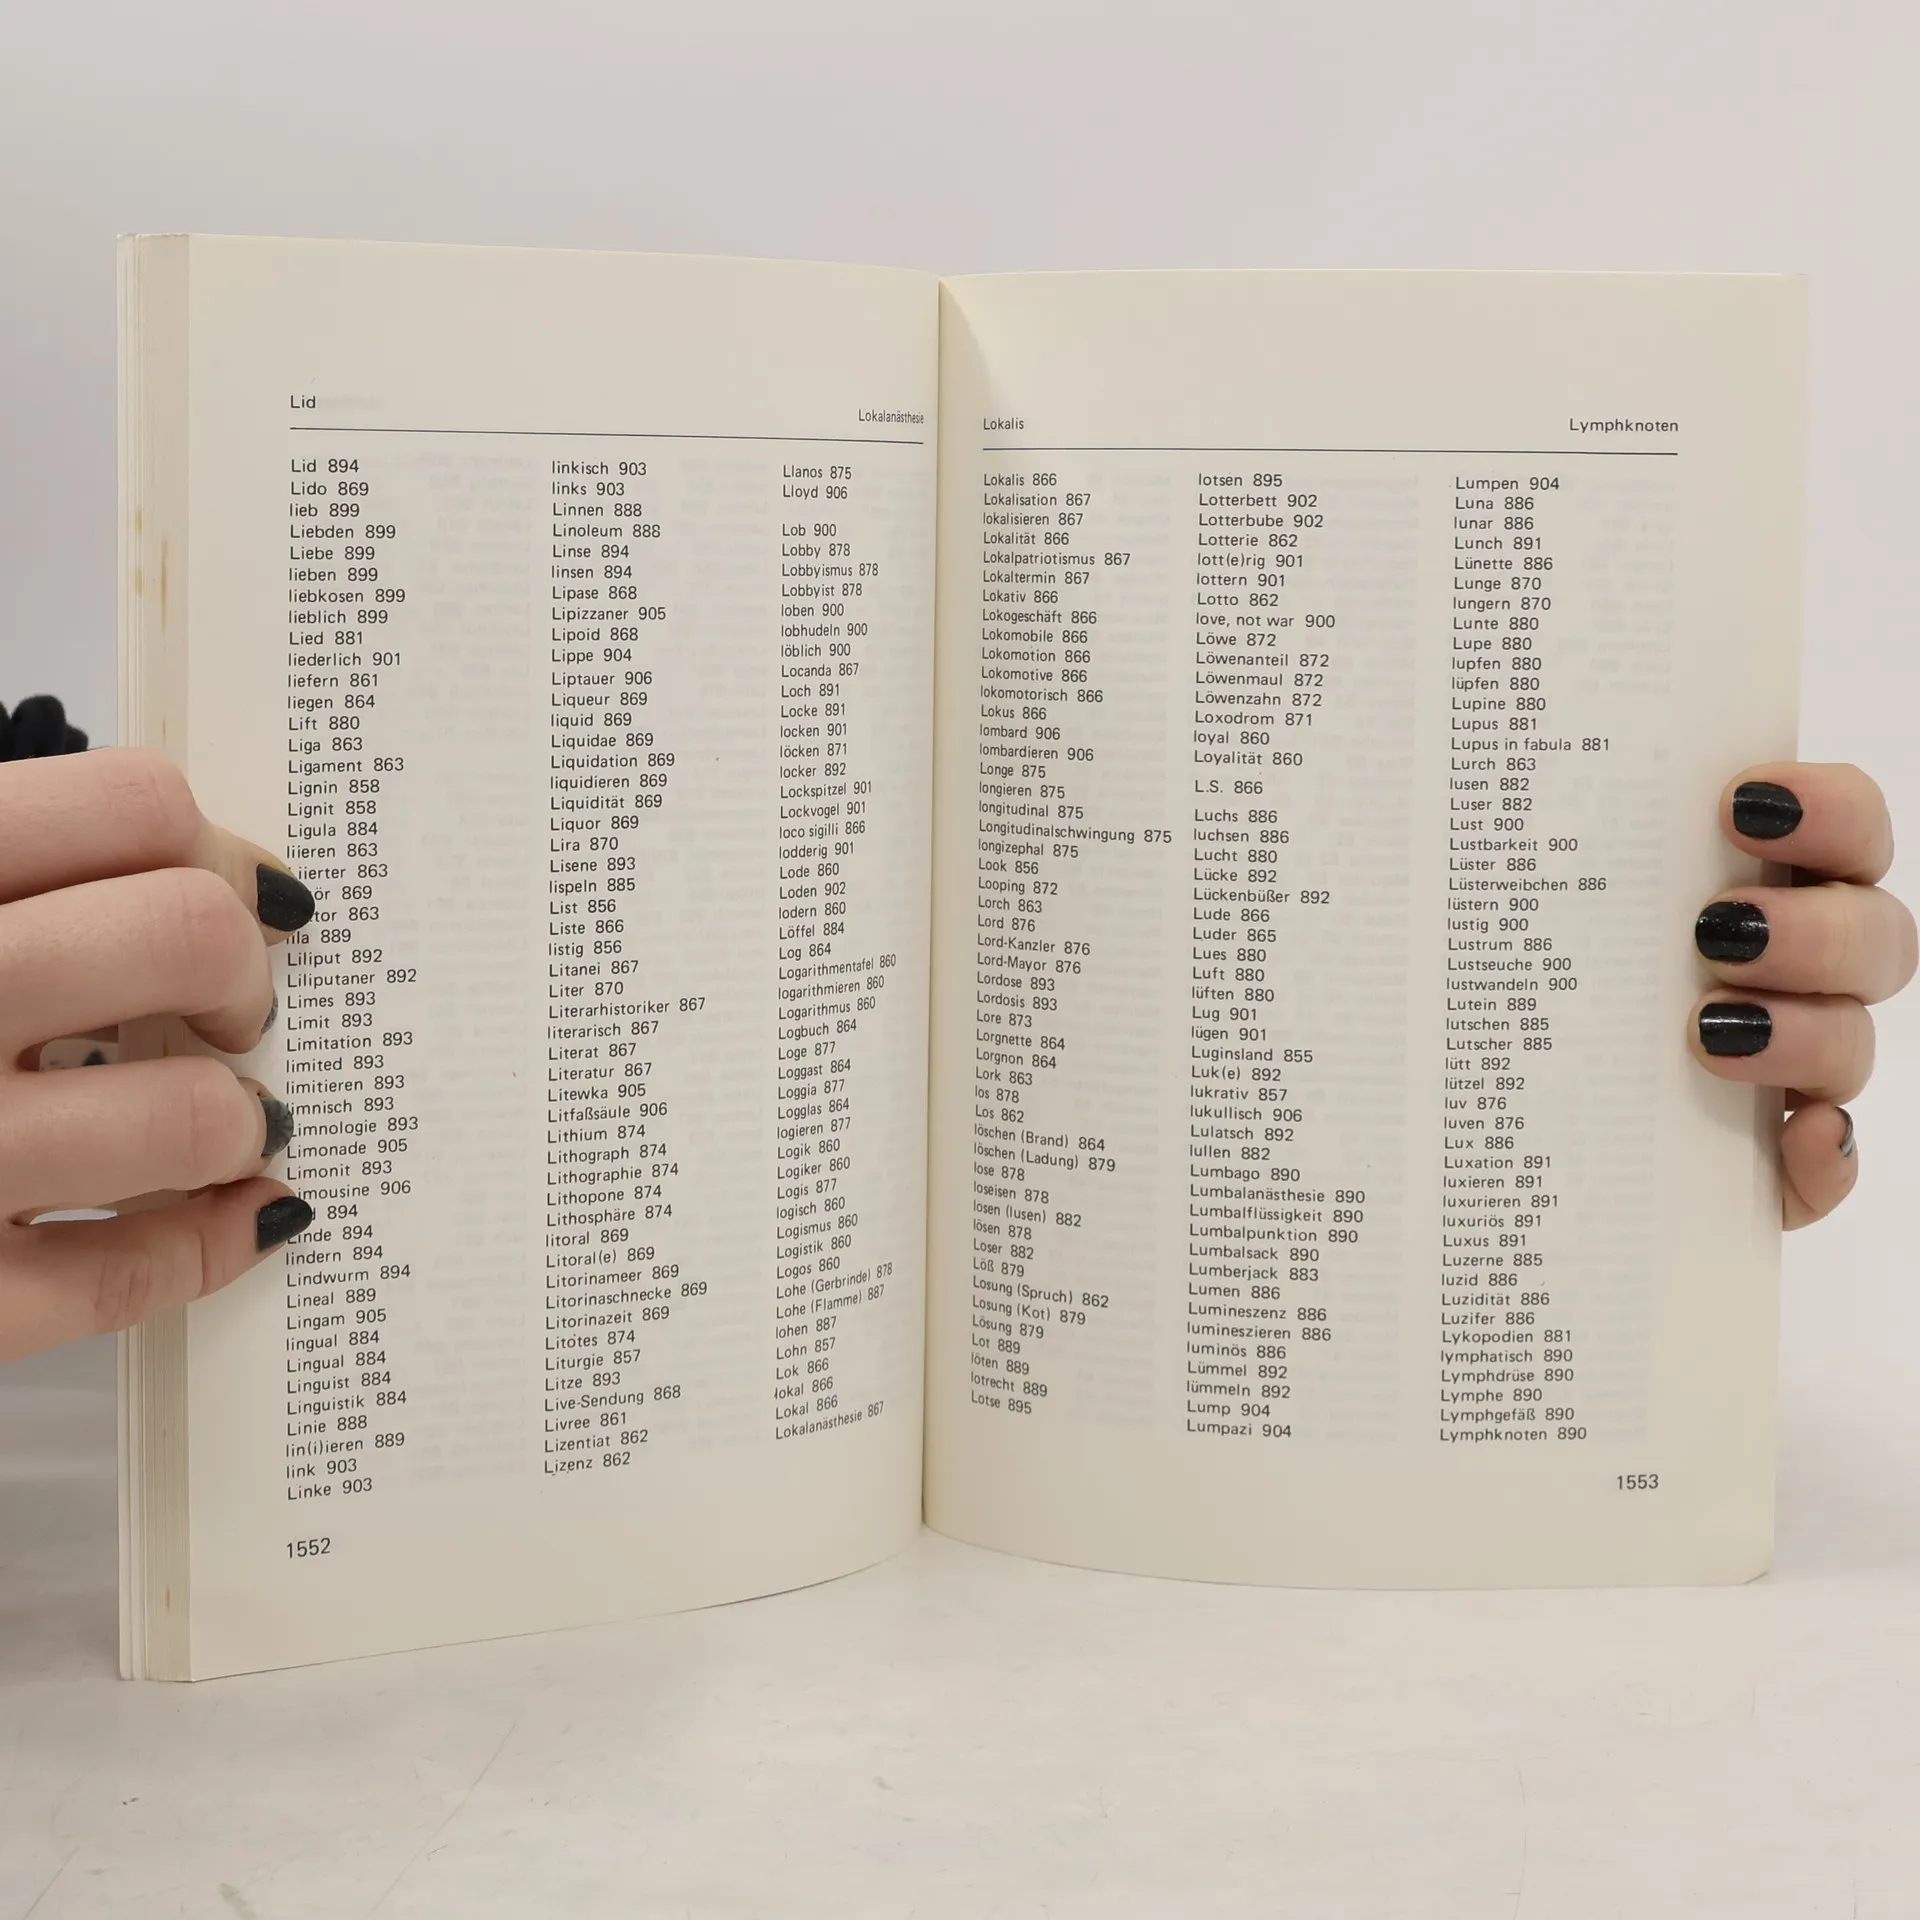 Lid
Lokalanästhesie
Lid 894
Lido 869
lieb 899
Liebden 899
Liebe 899
lieben 899
liebkosen 899
lieblich 899
Lied 881
liederlich 901
liefern 861
liegen 864
Lift 880
Liga 863
Ligament 863
Lignin 858
Lignit 858
Ligula 884
liieren 863
iierter 863
ör 869
tor 863
lila 889
Liliput 892
Liliputaner 892
Limes 893
Limit 893
Limitation 893
limited 893
limitieren 893
limnisch 893
Limnologie 893
Limonade 905
Limonit 893
imousine 906
894
Linde 894
lindern 894
Lindwurm 894
Lineal 889
Lingam 905
lingual 884
Lingual 884
Linguist 884
Linguistik 884
Linie 888
lin(i)ieren 889
link 903
Linke 903
linkisch 903
links 903
Linnen 888
Linoleum 888
Linse 894
linsen 894
Lipase 868
Lipizzaner 905
Lipoid 868
Lippe 904
Liptauer 906
Liqueur 869
liquid 869
Liquidae 869
Liquidation 869
liquidieren 869
Liquidität 869
Liquor 869
Lira 870
Lisene 893
lispeln 885
List 856
Liste 866
listig 856
Litanei 867
Liter 870
Literarhistoriker 867
literarisch 867
Literat 867
Literatur 867
Litewka 905
Litfaßsäule 906
Lithium 874
Lithograph 874
Lithographie 874
Lithopone 874
Lithosphäre 874
litoral 869
Litoral(e) 869
Litorinameer 869
Litorinaschnecke 869
Litorinazeit 869
Litotes 874
Liturgie 857
Litze 893
Live-Sendung 868
Livree 861
Lizentiat 862
Lizenz 862
Llanos 875
Lloyd 906
Lob 900
Lobby 878
Lobbyismus 878
Lobbyist 878
loben 900
lobhudeln 900
löblich 900
Locanda 867
Loch 891
Locke 891
locken 901
löcken 871
locker 892
Lockspitzel 901
Lockvogel 901
loco sigilli 866
lodderig 901
Lode 860
Loden 902
lodern 860
Löffel 884
Log 864
Logarithmentafel 860
logarithmieren 860
Logarithmus 860
Logbuch 864
Loge 877
Loggast 864
Loggia 877
Logglas 864
logieren 877
Logik 860
Logiker 860
Logis 877
logisch 860
Logismus 860
Logistik 860
Logos 860
Lohe (Gerbrinde) 878
Lohe (Flamme) 887
lohen 887
Lohn 857
Lok 866
lokal 866
Lokal 866
Lokalanästhesie 867
1552
Lokalis
Lymphknoten
Lokalis 866
Lokalisation 867
lokalisieren 867
Lokalität 866
Lokalpatriotismus 867
Lokaltermin 867
Lokativ 866
Lokogeschäft 866
Lokomobile 866
Lokomotion 866
Lokomotive 866
lokomotorisch 866
Lokus 866
lombard 906
lombardieren 906
Longe 875
longieren 875
longitudinal 875
Longitudinalschwingung 875
longizephal 875
Look 856
Looping 872
Lorch 863
Lord 876
Lord-Kanzler 876
Lord-Mayor 876
Lordose 893
Lordosis 893
Lore 873
Lorgnette 864
Lorgnon 864
Lork 863
los 878
Los 862
löschen (Brand) 864
löschen (Ladung) 879
lose 878
loseisen 878
losen (lusen) 882
lösen 878
Loser 882
Löß 879
Losung (Spruch) 862
Losung (Kot) 879
Lösung 879
Lot 889
löten 889
lotrecht 889
Lotse 895
lotsen 895
Lotterbett 902
Lotterbube 902
Lotterie 862
lott(e)rig 901
lottern 901
Lotto 862
love, not war 900
Löwe 872
Löwenanteil 872
Löwenmaul 872
Löwenzahn 872
Loxodrom 871
loyal 860
Loyalität 860
L.S. 866
Luchs 886
luchsen 886
Lucht 880
Lücke 892
Lückenbüßer 892
Lude 866
Luder 865
Lues 880
Luft 880
lüften 880
Lug 901
lügen 901
Luginsland 855
Luk(e) 892
lukrativ 857
lukullisch 906
Lulatsch 892
lullen 882
Lumbago 890
Lumbalanästhesie 890
Lumbalflüssigkeit 890
Lumbalpunktion 890
Lumbalsack 890
Lumberjack 883
Lumen 886
Lumineszenz 886
lumineszieren 886
luminös 886
Lümmel 892
lümmeln 892
Lump 904
Lumpazi 904
Lumpen 904
Luna 886
lunar 886
Lunch 891
Lünette 886
Lunge 870
lungern 870
Lunte 880
Lupe 880
lupfen 880
lüpfen 880
Lupine 880
Lupus 881
Lupus in fabula 881
Lurch 863
lusen 882
Luser 882
Lust 900
Lustbarkeit 900
Lüster 886
Lüsterweibchen 886
lüstern 900
lustig 900
Lustrum 886
Lustseuche 900
lustwandeln 900
Lutein 889
lutschen 885
Lutscher 885
lütt 892
lützel 892
luv 876
luven 876
Lux 886
Luxation 891
luxieren 891
luxurieren 891
luxuriös 891
Luxus 891
Luzerne 885
luzid 886
Luzidität 886
Luzifer 886
Lykopodien 881
lymphatisch 890
Lymphdrüse 890
Lymphe 890
Lymphgefäß 890
Lymphknoten 890
1553